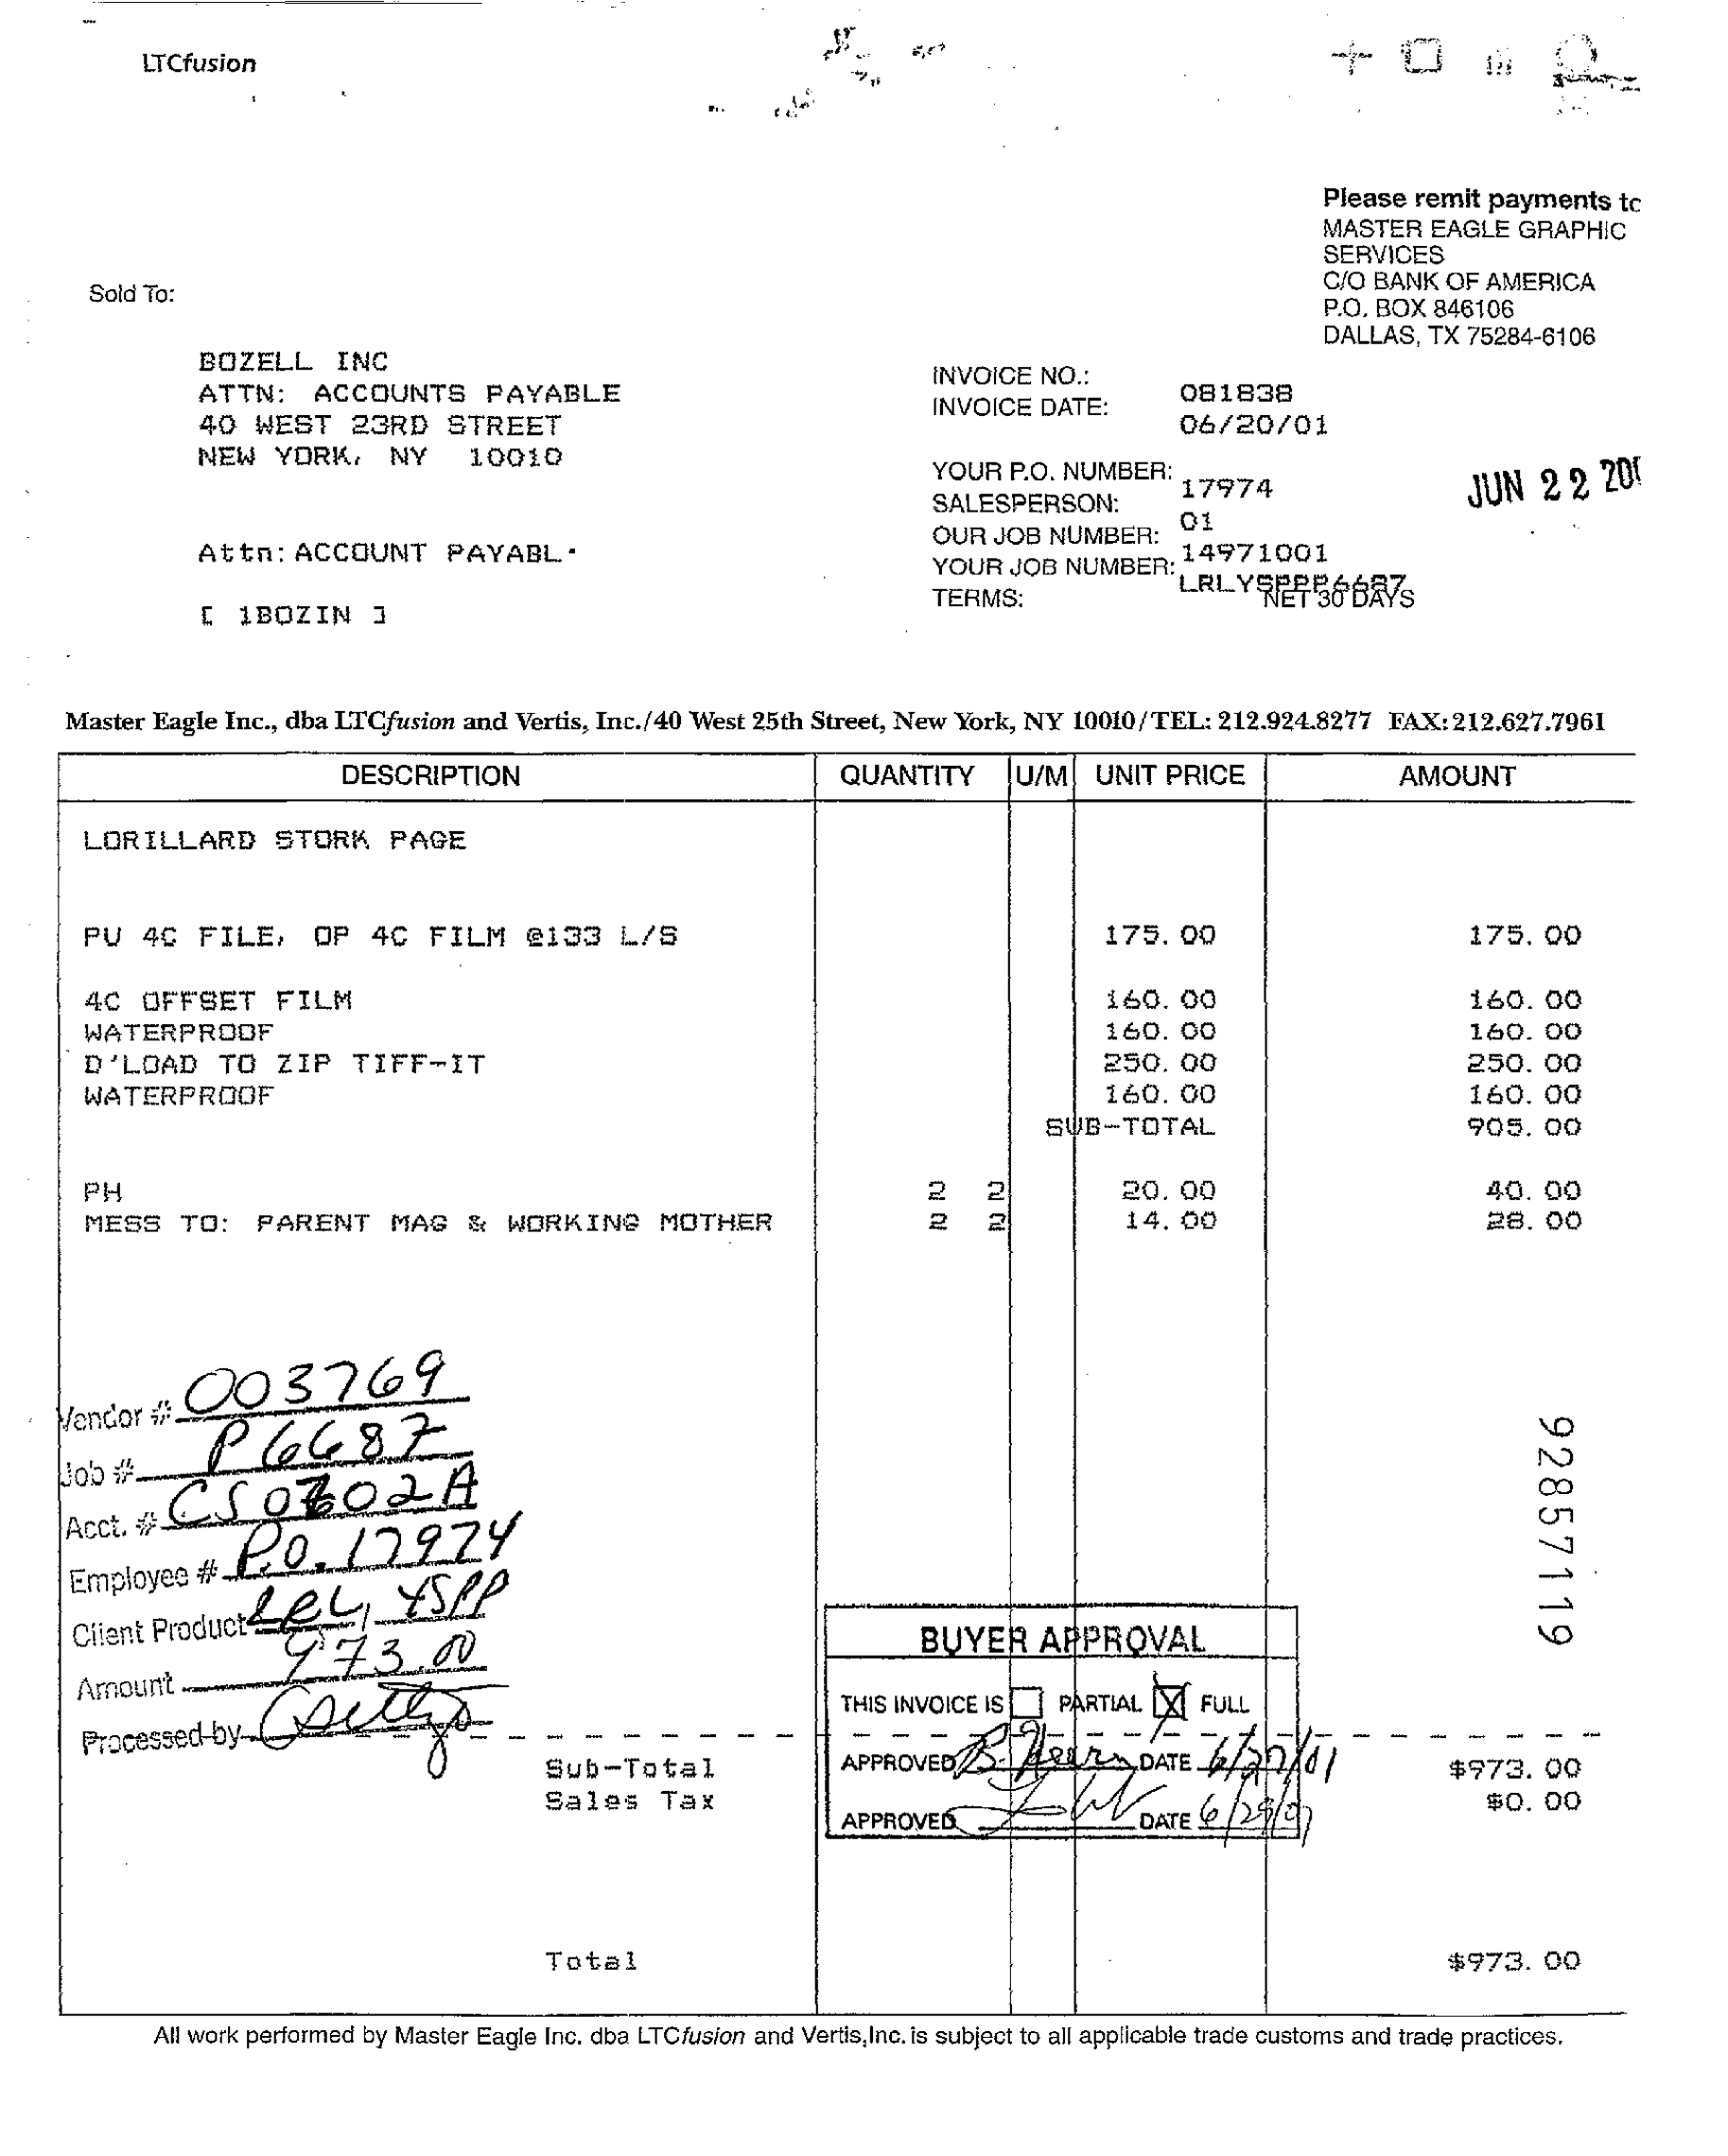 LTCfusion
Please remit payments to
MASTER EAGLE GRAPHIC
SERVICES
C/O BANK OF AMERICA
P.O. BOX 846106
DALLAS, TX 75284-6106
Sold To:
BOZELL INC
ATTN: ACCOUNTS PAYABLE
40 WEST 23RD STREET
NEW YORK, NY 10010
Attn: ACCOUNT PAYABL.
[ 1BOZIN ]
INVOICE NO.: 081838
INVOICE DATE: 06/20/01
YOUR P.O. NUMBER: 17974
SALESPERSON: 01
OUR JOB NUMBER: 14971001
YOUR JOB NUMBER: LRLYSPPP6687
TERMS: NET 30 DAYS
JUN 22 200
Master Eagle Inc., dba LTCfusion and Vertis, Inc./40 West 25th Street, New York, NY 10010/TEL: 212.924.8277 FAX:212.627.7961
DESCRIPTION QUANTITY U/M UNIT PRICE AMOUNT
LORILLARD STORK PAGE
PU 4C FILE, OP 4C FILM @133 L/S 175.00 175.00
4C OFFSET FILM 160.00 160.00
WATERPROOF 160.00 160.00
D'LOAD TO ZIP TIFF-IT 250.00 250.00
WATERPROOF 160.00 160.00
SUB-TOTAL 905.00
PH 2 2 20.00 40.00
MESS TO: PARENT MAG & WORKING MOTHER 2 2 14.00 28.00
Vendor # 003769
Job # P6687
Acct. # CS0702A
Employee # P.O. 17974
Client Product LRL / YSPP
Amount 973.00
Processed by
92857119
BUYER APPROVAL
THIS INVOICE IS PARTIAL X FULL
APPROVED DATE 6/27/01
APPROVED DATE 6/29/01
Sub-Total $973.00
Sales Tax $0.00
Total $973.00
All work performed by Master Eagle Inc. dba LTCfusion and Vertis,Inc. is subject to all applicable trade customs and trade practices.